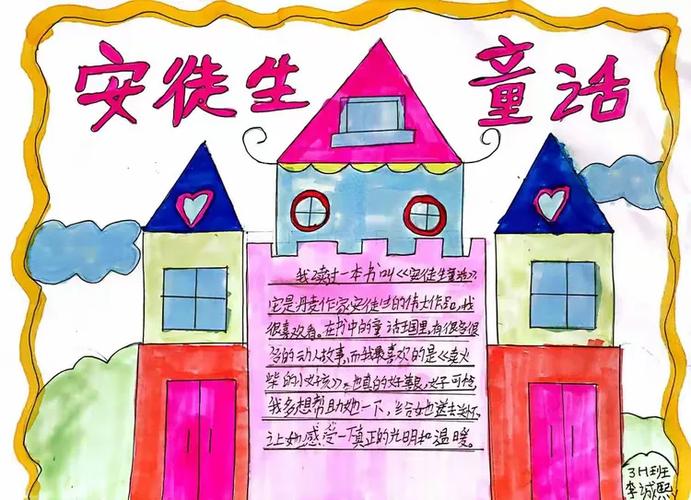 安徒生 童话
我读过一本书叫《安徒生童话》,
它是丹麦作家安徒生的伟大作品,我
很喜欢看。在书中的童话王国里,有很多很
多的动人故事,而我最喜欢的是《卖火
柴的小女孩》。她真的好善良,好可怜,
我多想帮助她一下,给她送去关怀,
让她感受一下真正的光明和温暖。
3H班
李诚熙